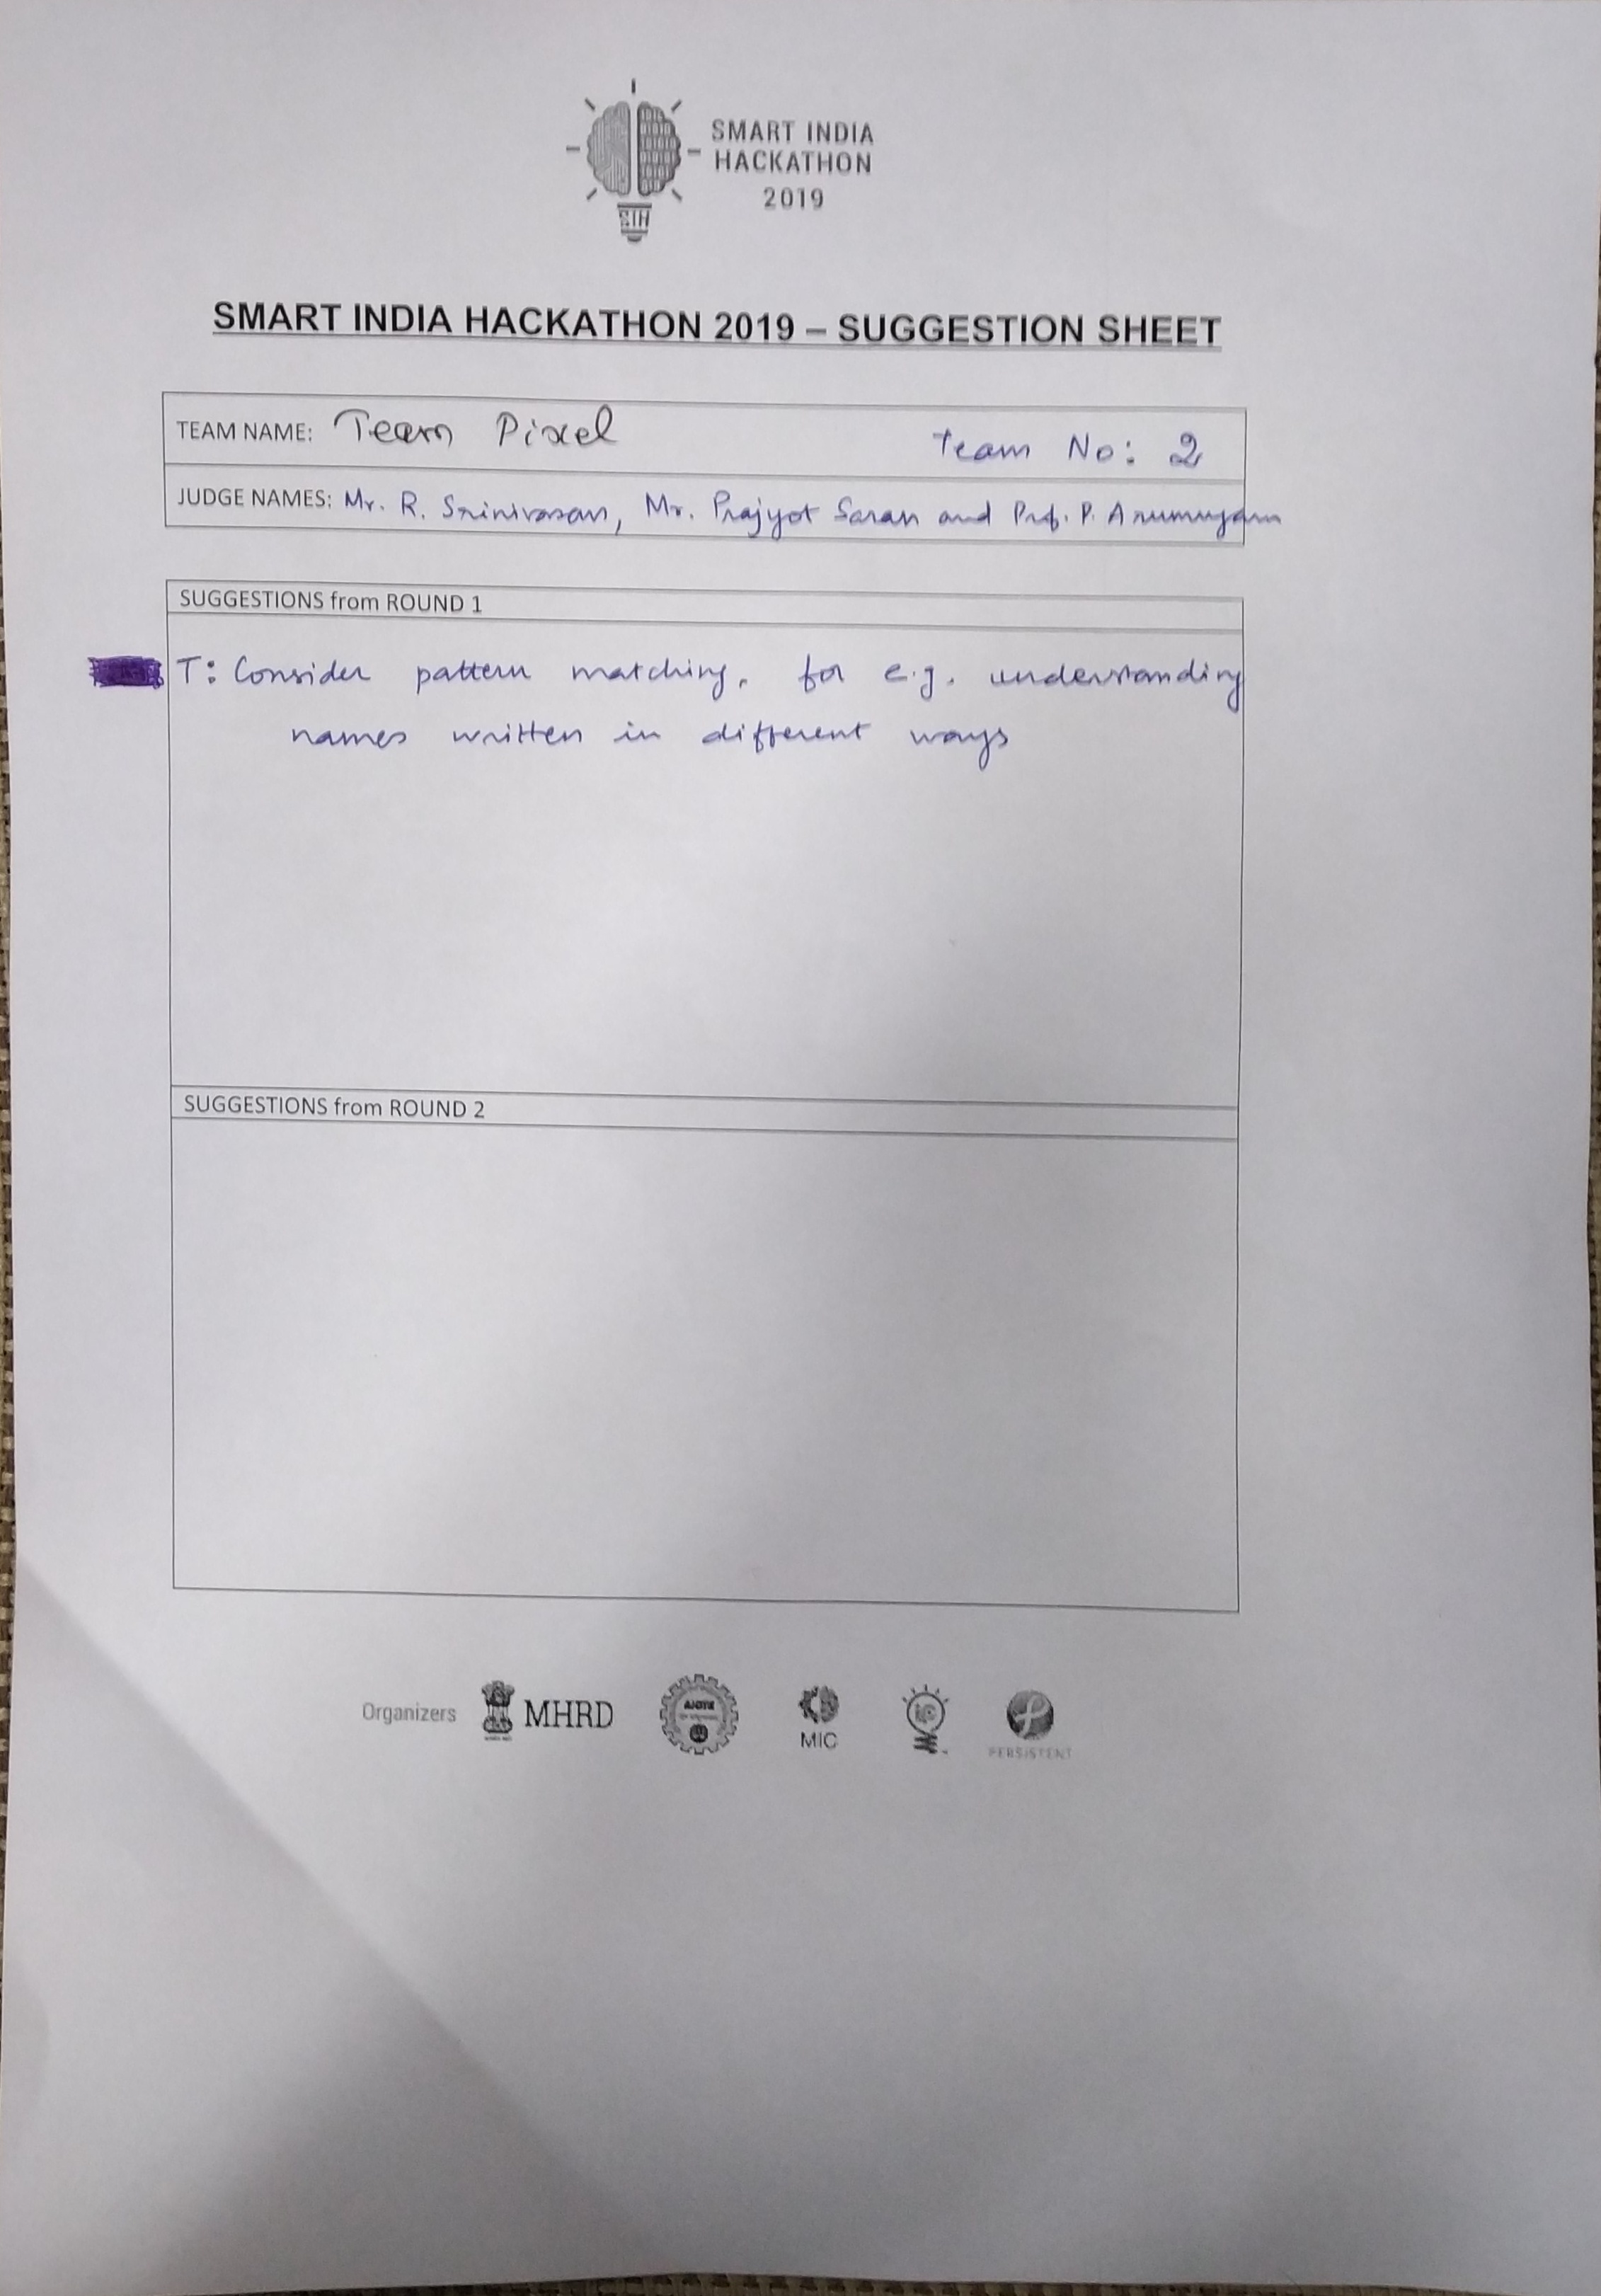 SMART INDIA
HACKATHON
2019
SIH
SMART INDIA HACKATHON 2019 – SUGGESTION SHEET
TEAM NAME: Team Pixel Team No: 2
JUDGE NAMES: Mr. R. Srinivasan, Mr. Prajyot Saran and Prof. P. Arumugam
SUGGESTIONS from ROUND 1
T: Consider pattern matching, for e.g. understanding
names written in different ways
SUGGESTIONS from ROUND 2
Organizers MHRD AICTE MIC PERSISTENT